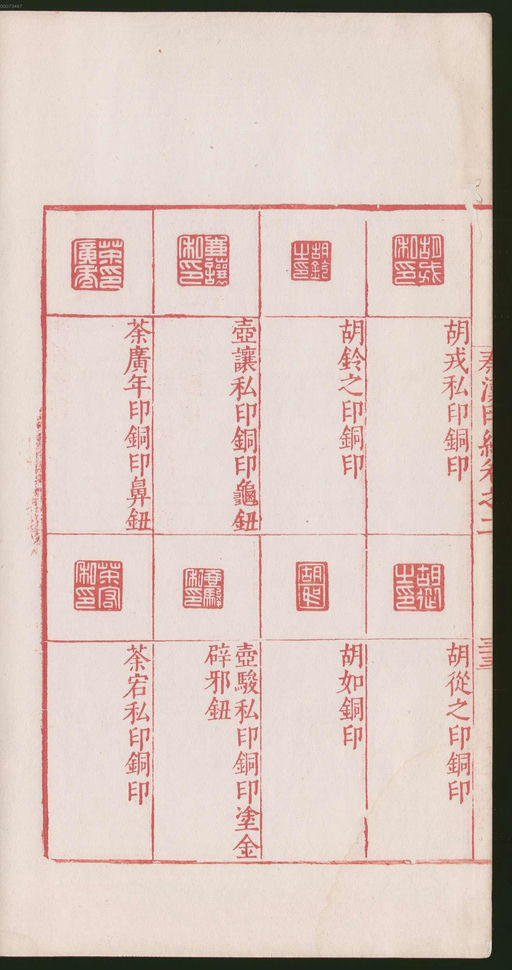 胡戎私印銅印
胡鈴之印銅印
壺讓私印銅印龜鈕
荼廣年印銅印鼻鈕
胡從之印銅印
胡如銅印
壺駿私印銅印塗金
辟邪鈕
荼宕私印銅印
00073467